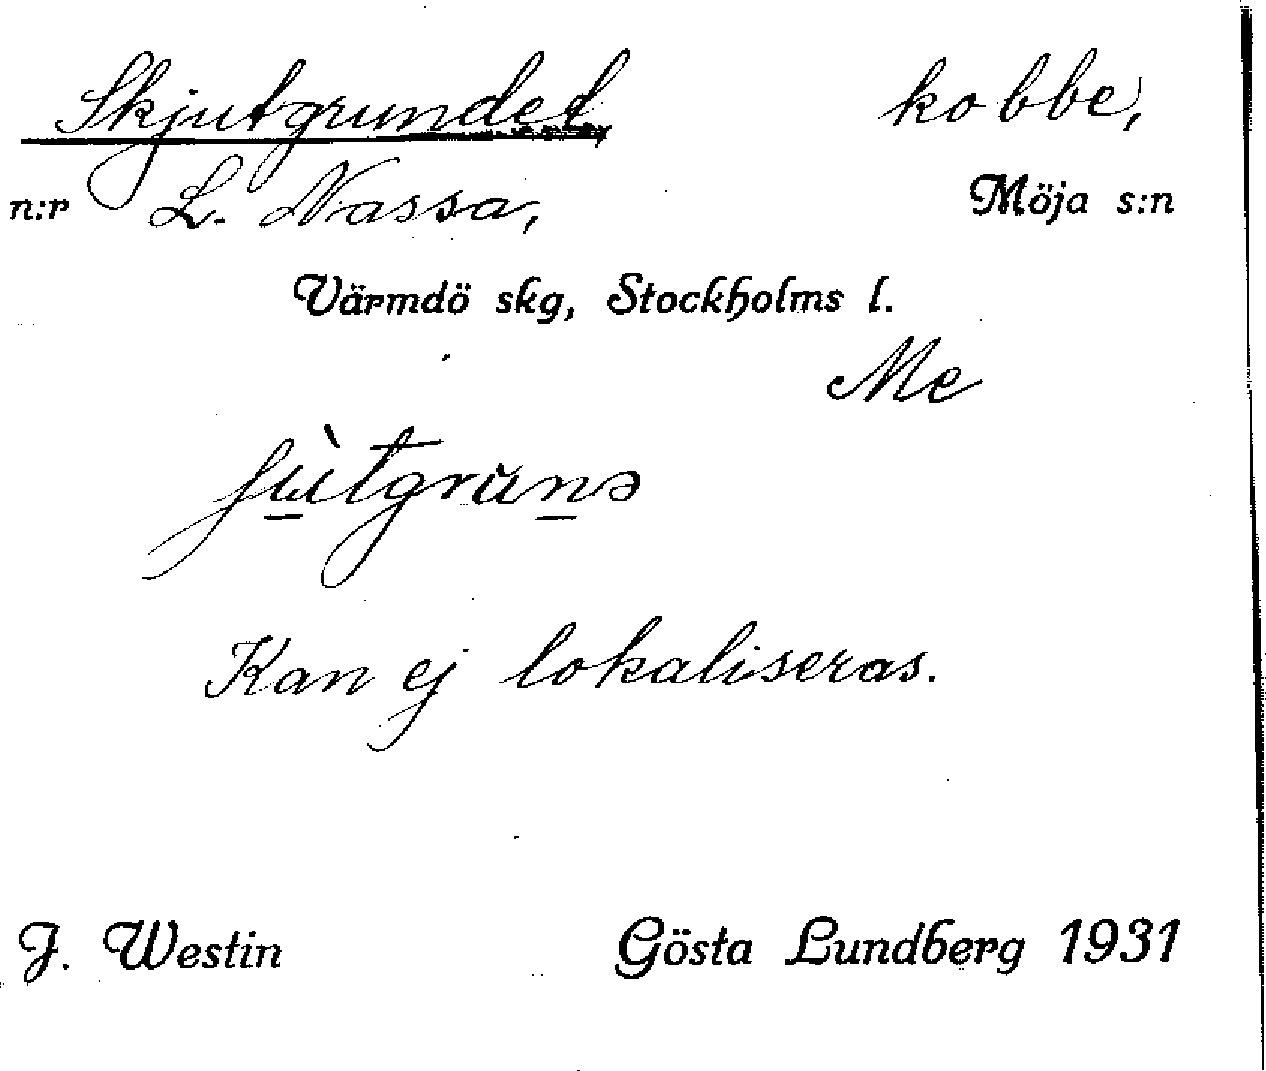 Skjutgrundet kobbe,
n:r L. Nassa, Möja s:n
Värmdö skg, Stockholms l.
Me
Kan ej lokaliseras.
J. Westin Gösta Lundberg 1931